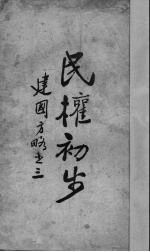 民權初步
建國方略之三